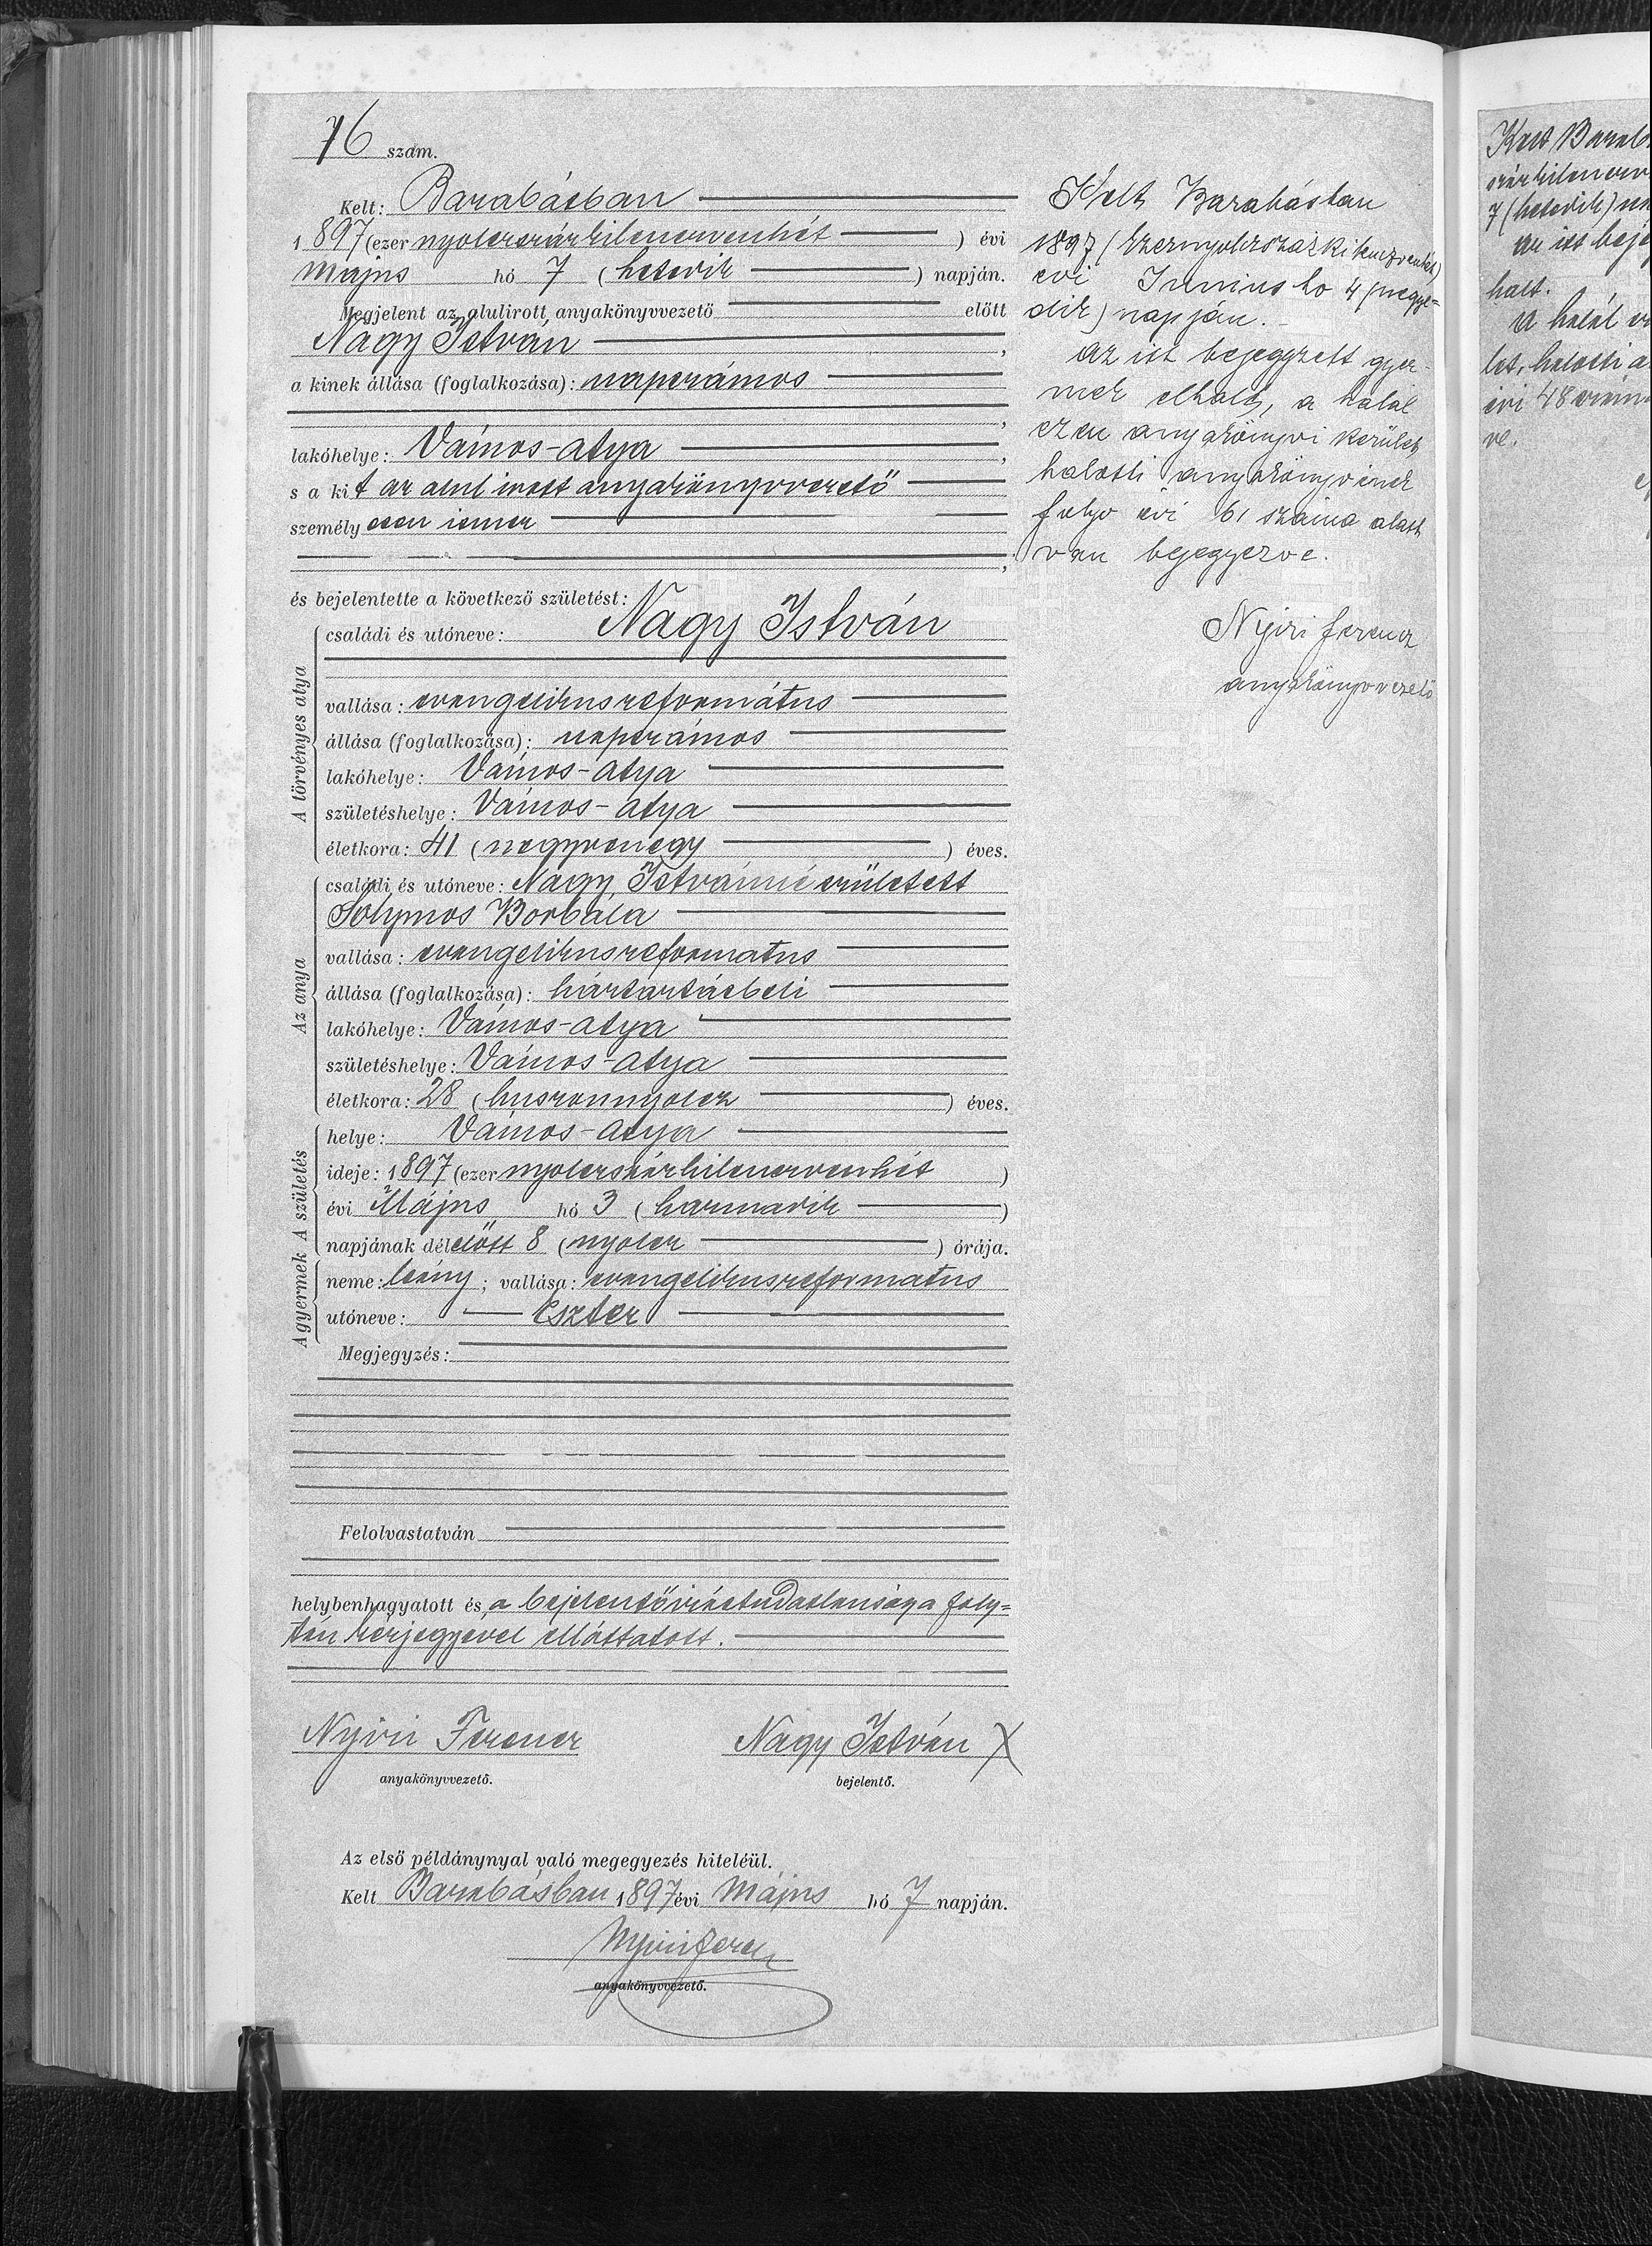 76 szám.
Kelt: Barabásban
1897 (ezer nyolczszázkilenczvenhét) évi
május hó 7 (hetedik) napján.
Megjelent az alulirott anyakönyvvezető előtt
Nagy István,
a kinek állása (foglalkozása): napszámos
,
lakóhelye: Vámos-atya,
s a kit az alul irott anyakönyvvezető
személyesen ismer
,
és bejelentette a következő születést:
A törvényes atya
családi és utóneve: Nagy István
vallása: evangelikus református
állása (foglalkozása): napszámos
lakóhelye: Vámos-atya
születéshelye: Vámos-atya
életkora: 41 (negyvenegy) éves.
Az anya
családi és utóneve: Nagy Istvánné született
Solymos Borbála
vallása: evangelikus reformatus
állása (foglalkozása): háztartásbeli
lakóhelye: Vámos-atya
születéshelye: Vámos-atya
életkora: 28 (huszonnyolcz) éves.
A születés
helye: Vámos-atya
ideje: 1897 (ezer nyolczszázkilenczvenhét)
évi Május hó 3 (harmadik)
napjának délelőtt 8 (nyolcz) órája.
A gyermek
neme: leány; vallása: evangelikus reformatus
utóneve: Eszter
Megjegyzés:
Felolvastatván
helybenhagyatott és, a bejelentő irástudatlansága foly=
tán kézjegyével elláttatott.
Nyiri Ferencz
anyakönyvvezető.
Nagy István X
bejelentő.
Az első példánynyal való megegyezés hiteléül.
Kelt Barabásban 1897 évi Május hó 7 napján.
Nyiri Ferencz
anyakönyvvezető.
Kelt Barabásban
1897 (Ezernyolczszázkilenczvenhét)
évi Junius hó 4 (negye=
dik) napján.
Az itt bejegyzett gyer-
mek elhalt, a halál
ezen anyakönyvi kerület
halotti anyakönyvének
folyó évi 61 száma alatt
van bejegyezve.
Nyiri Ferencz
anyakönyvvezető
Kelt Barab
7 (hetedik) na
az itt beje
halt.
A halál
let, halotti a
évi 48 szám
ve.